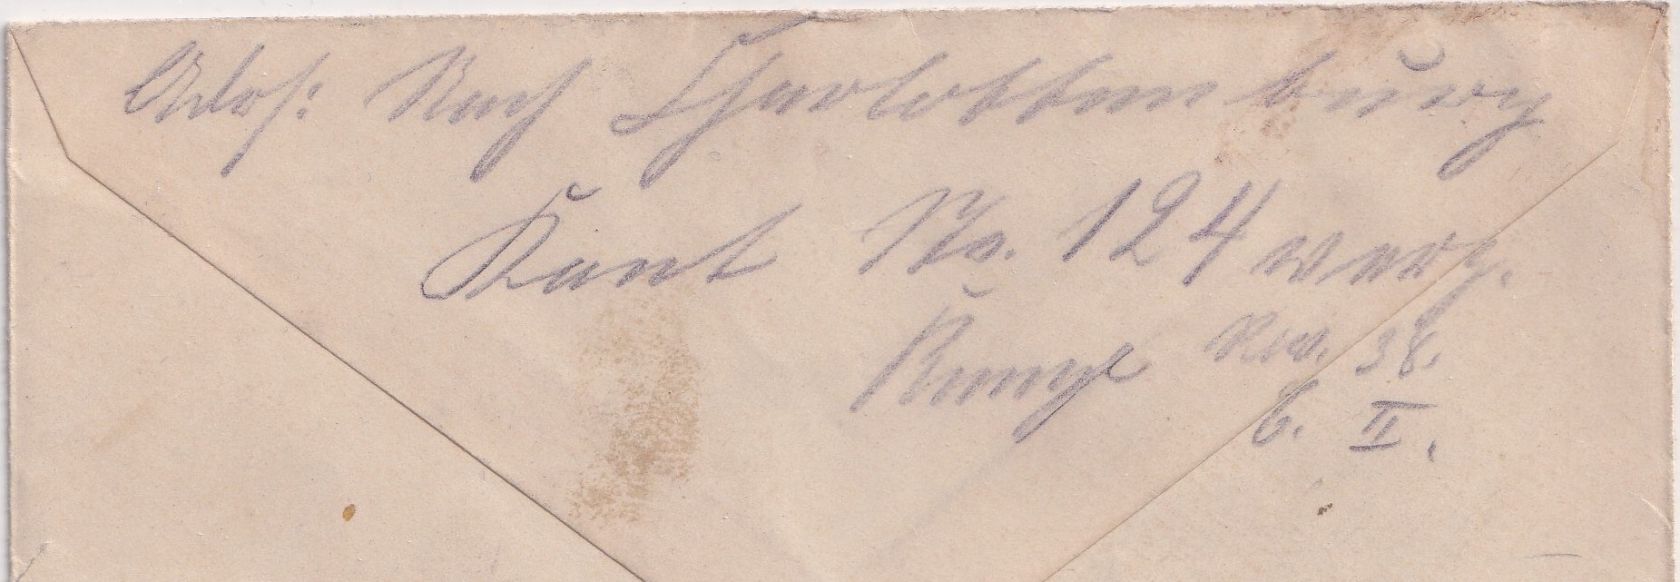 Abs: Nach Charlottenburg
Kant No. 124 verz.
Rev. 38.
6. II.